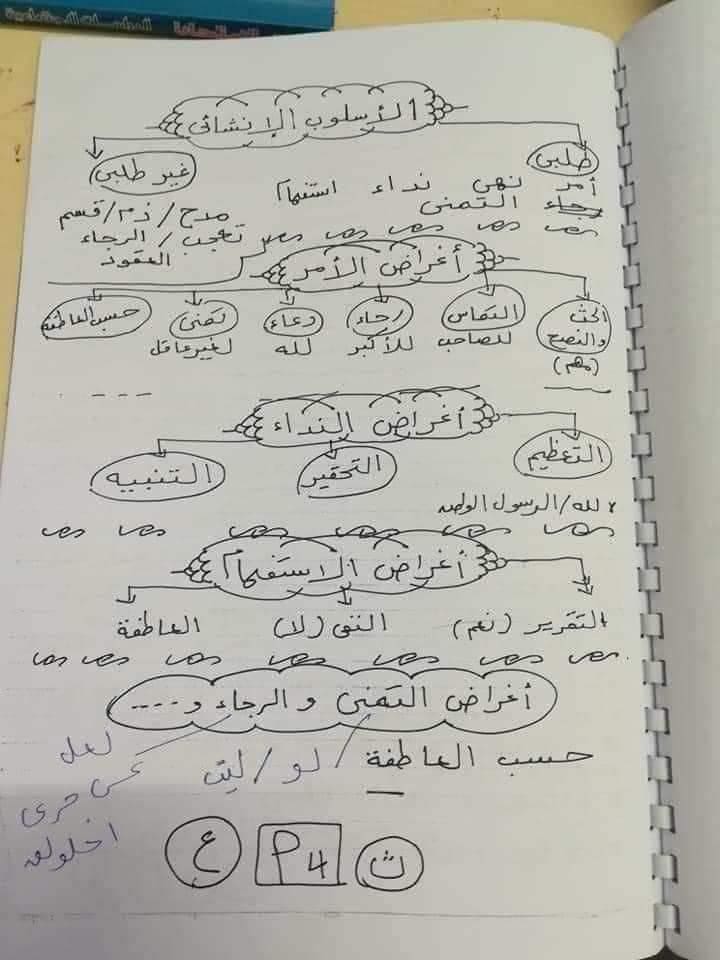 الأسلوب الإنشائى
طلبى
غير طلبى
أمر نهى نداء استفهام
رجاء التمنى
مدح/ذم/قسم
تعجب/الرجاء
العقود
أغراض الأمر
الحث والنصح
التماس
رجاء
دعاء
تمنى
حسب العاطفة
للصاحب
للأكبر
لله
لغير عاقل
(مهم)
أغراض النداء
التعظيم
التحقير
التنبيه
لله/الرسول الوطن
أغراض الاستفهام
التقرير (نعم)
النفى (لا)
العاطفة
أغراض التمنى والرجاء و....
حسب العاطفة
لو/ليت
لعل
عسى حرى
اخلولق
ث
P4
ع